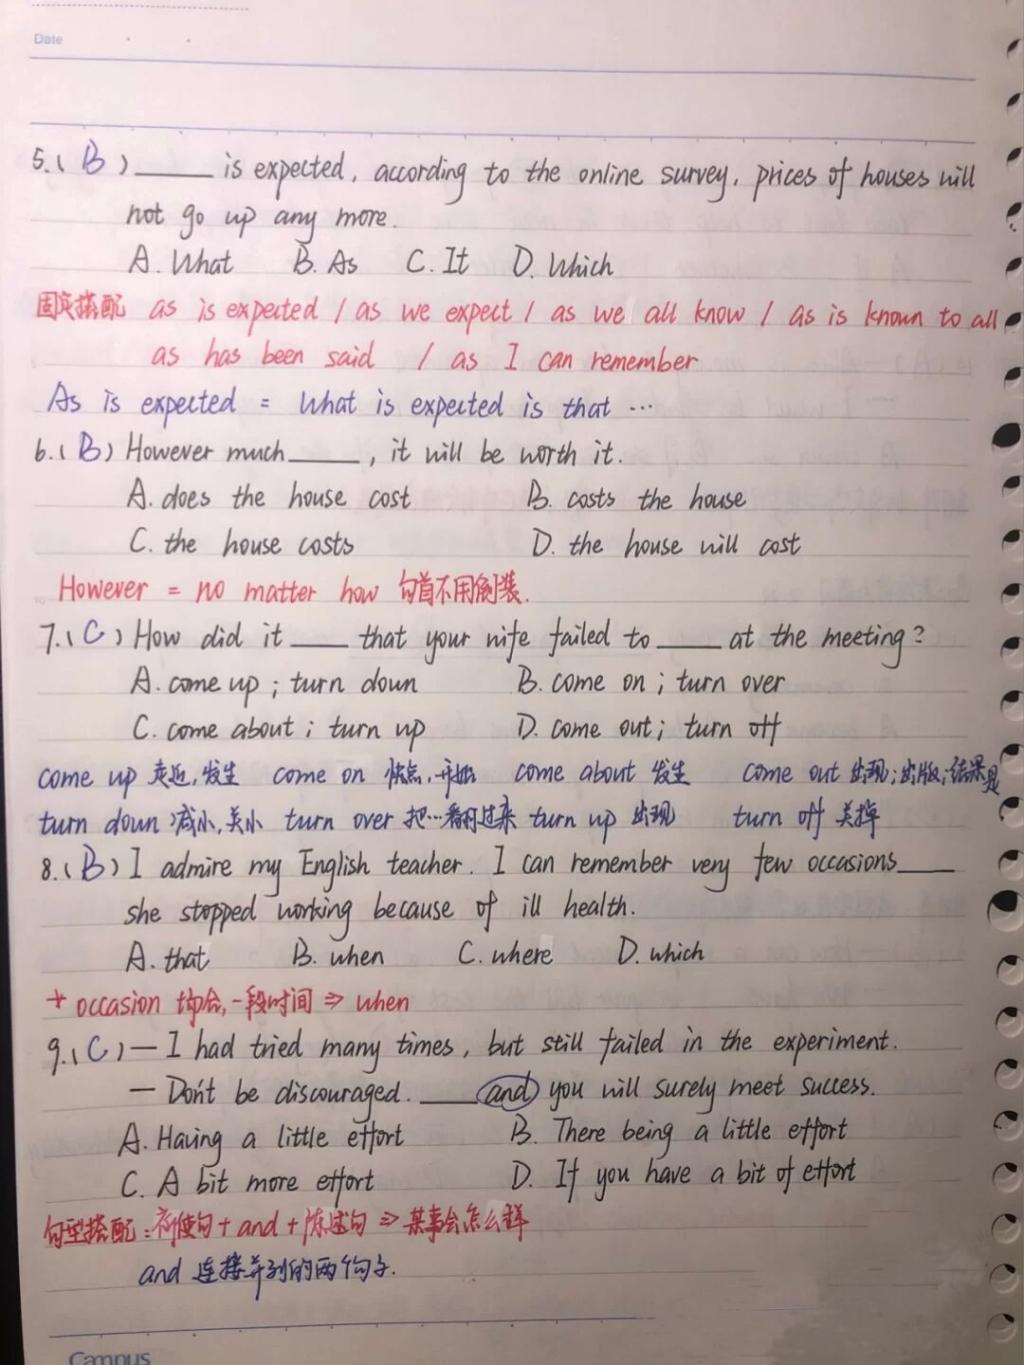 Date
5.(B)____ is expected, according to the online survey, prices of houses will
not go up any more.
A. What B. As C. It D. Which
固定搭配 as is expected / as we expect / as we all know / as is known to all
as has been said / as I can remember
As is expected = What is expected is that …
6.(B) However much____, it will be worth it.
A. does the house cost B. costs the house
C. the house costs D. the house will cost
However = no matter how 句首不用倒装.
7.(C) How did it ____ that your wife failed to ____ at the meeting?
A. come up ; turn down B. come on ; turn over
C. come about ; turn up D. come out ; turn off
come up 走近,发生 come on 快点,开始 come about 发生 come out 出现;出版;结果是
turn down 减小,关小 turn over 把…翻过来 turn up 出现 turn off 关掉
8.(B) I admire my English teacher. I can remember very few occasions____
she stopped working because of ill health.
A. that B. when C. where D. which
occasion 场合,一段时间 ⇒ when
9.(C) — I had tried many times, but still failed in the experiment.
— Don't be discouraged. ____ and you will surely meet success.
A. Having a little effort B. There being a little effort
C. A bit more effort D. If you have a bit of effort
句型搭配:祈使句 + and + 陈述句 ⇒ 某事会怎么样
and 连接并列的两个句子.
Campus